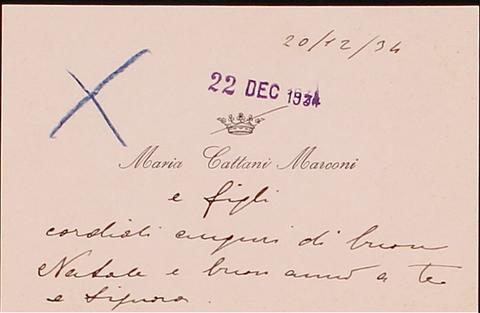 20/12/34
22 DEC 1934
Maria Cattani Marconi
e figli
cordiali auguri di buon
Natale e buon anno a te
e Signora.